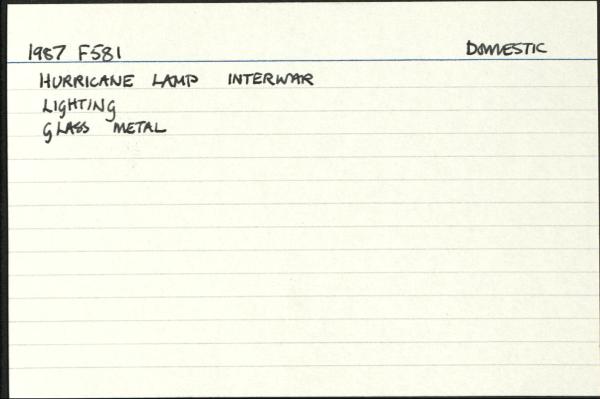 1987 F581 DOMESTIC
HURRICANE LAMP INTERWAR
LIGHTING
GLASS METAL